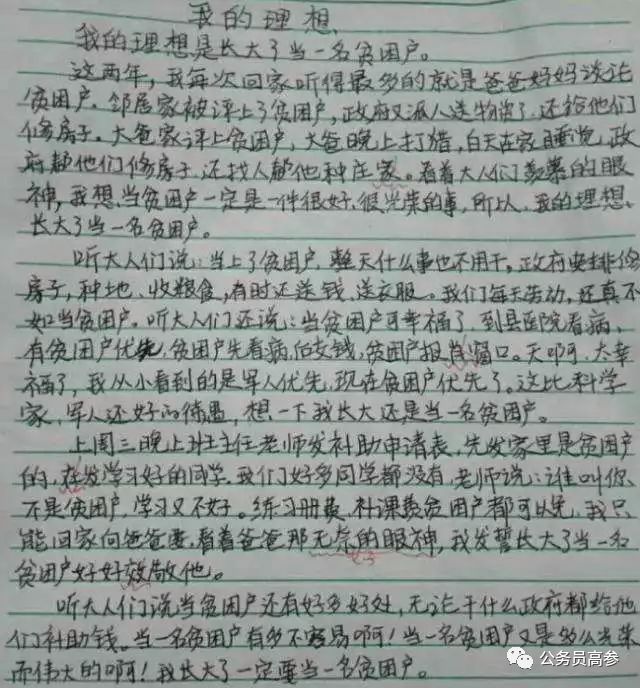 我的理想
我的理想是长大了当一名贫困户。
这两年，我每次回家听得最多的就是爸爸妈妈谈论
贫困户。邻居家被评上了贫困户，政府又派人送物资了，还给他们
们修房子。大爸家评上贫困户，大爸晚上打猎，白天在家睡觉，政
府帮他们修房子，还找人帮他种庄家。看着大人们羡慕的眼
神，我想，当贫困户一定是一件很好，很光荣的事，所以，我的理想，
长大了当一名贫困户。
听大人们说：当上了贫困户，整天什么事也不用干。政府安排修
房子，种地、收粮食，有时还送钱、送衣服。我们每天劳动，还真不
如当贫困户。听大人们还说：当贫困户可幸福了，到县医院看病，
有贫困户优先，贫困户先看病，后交钱，贫困户报肖窗口。天啊，太幸
福了，我从小看到的是军人优先，现在贫困户优先了。这比科学
家，军人还好的待遇，想一下我长大还是当一名贫困户。
上周三晚上班主任老师发补助申请表，先发家里是贫困户
的，在发学习好的同学。我们好多同学都没有，老师说：谁叫你
不是贫困户，学习又不好。练习册费，补课费贫困户都可以免，我只
能回家向爸爸要，看着爸爸那无奈的眼神，我发誓长大了当一名
贫困户好好效敬他。
听大人们说当贫困户还有好多好处，无论干什么政府都给他
们补助钱。当一名贫困户有多不容易啊！当一名贫困户又是多么光荣
而伟大的啊！我长大了一定要当一名贫困户。
公务员高参